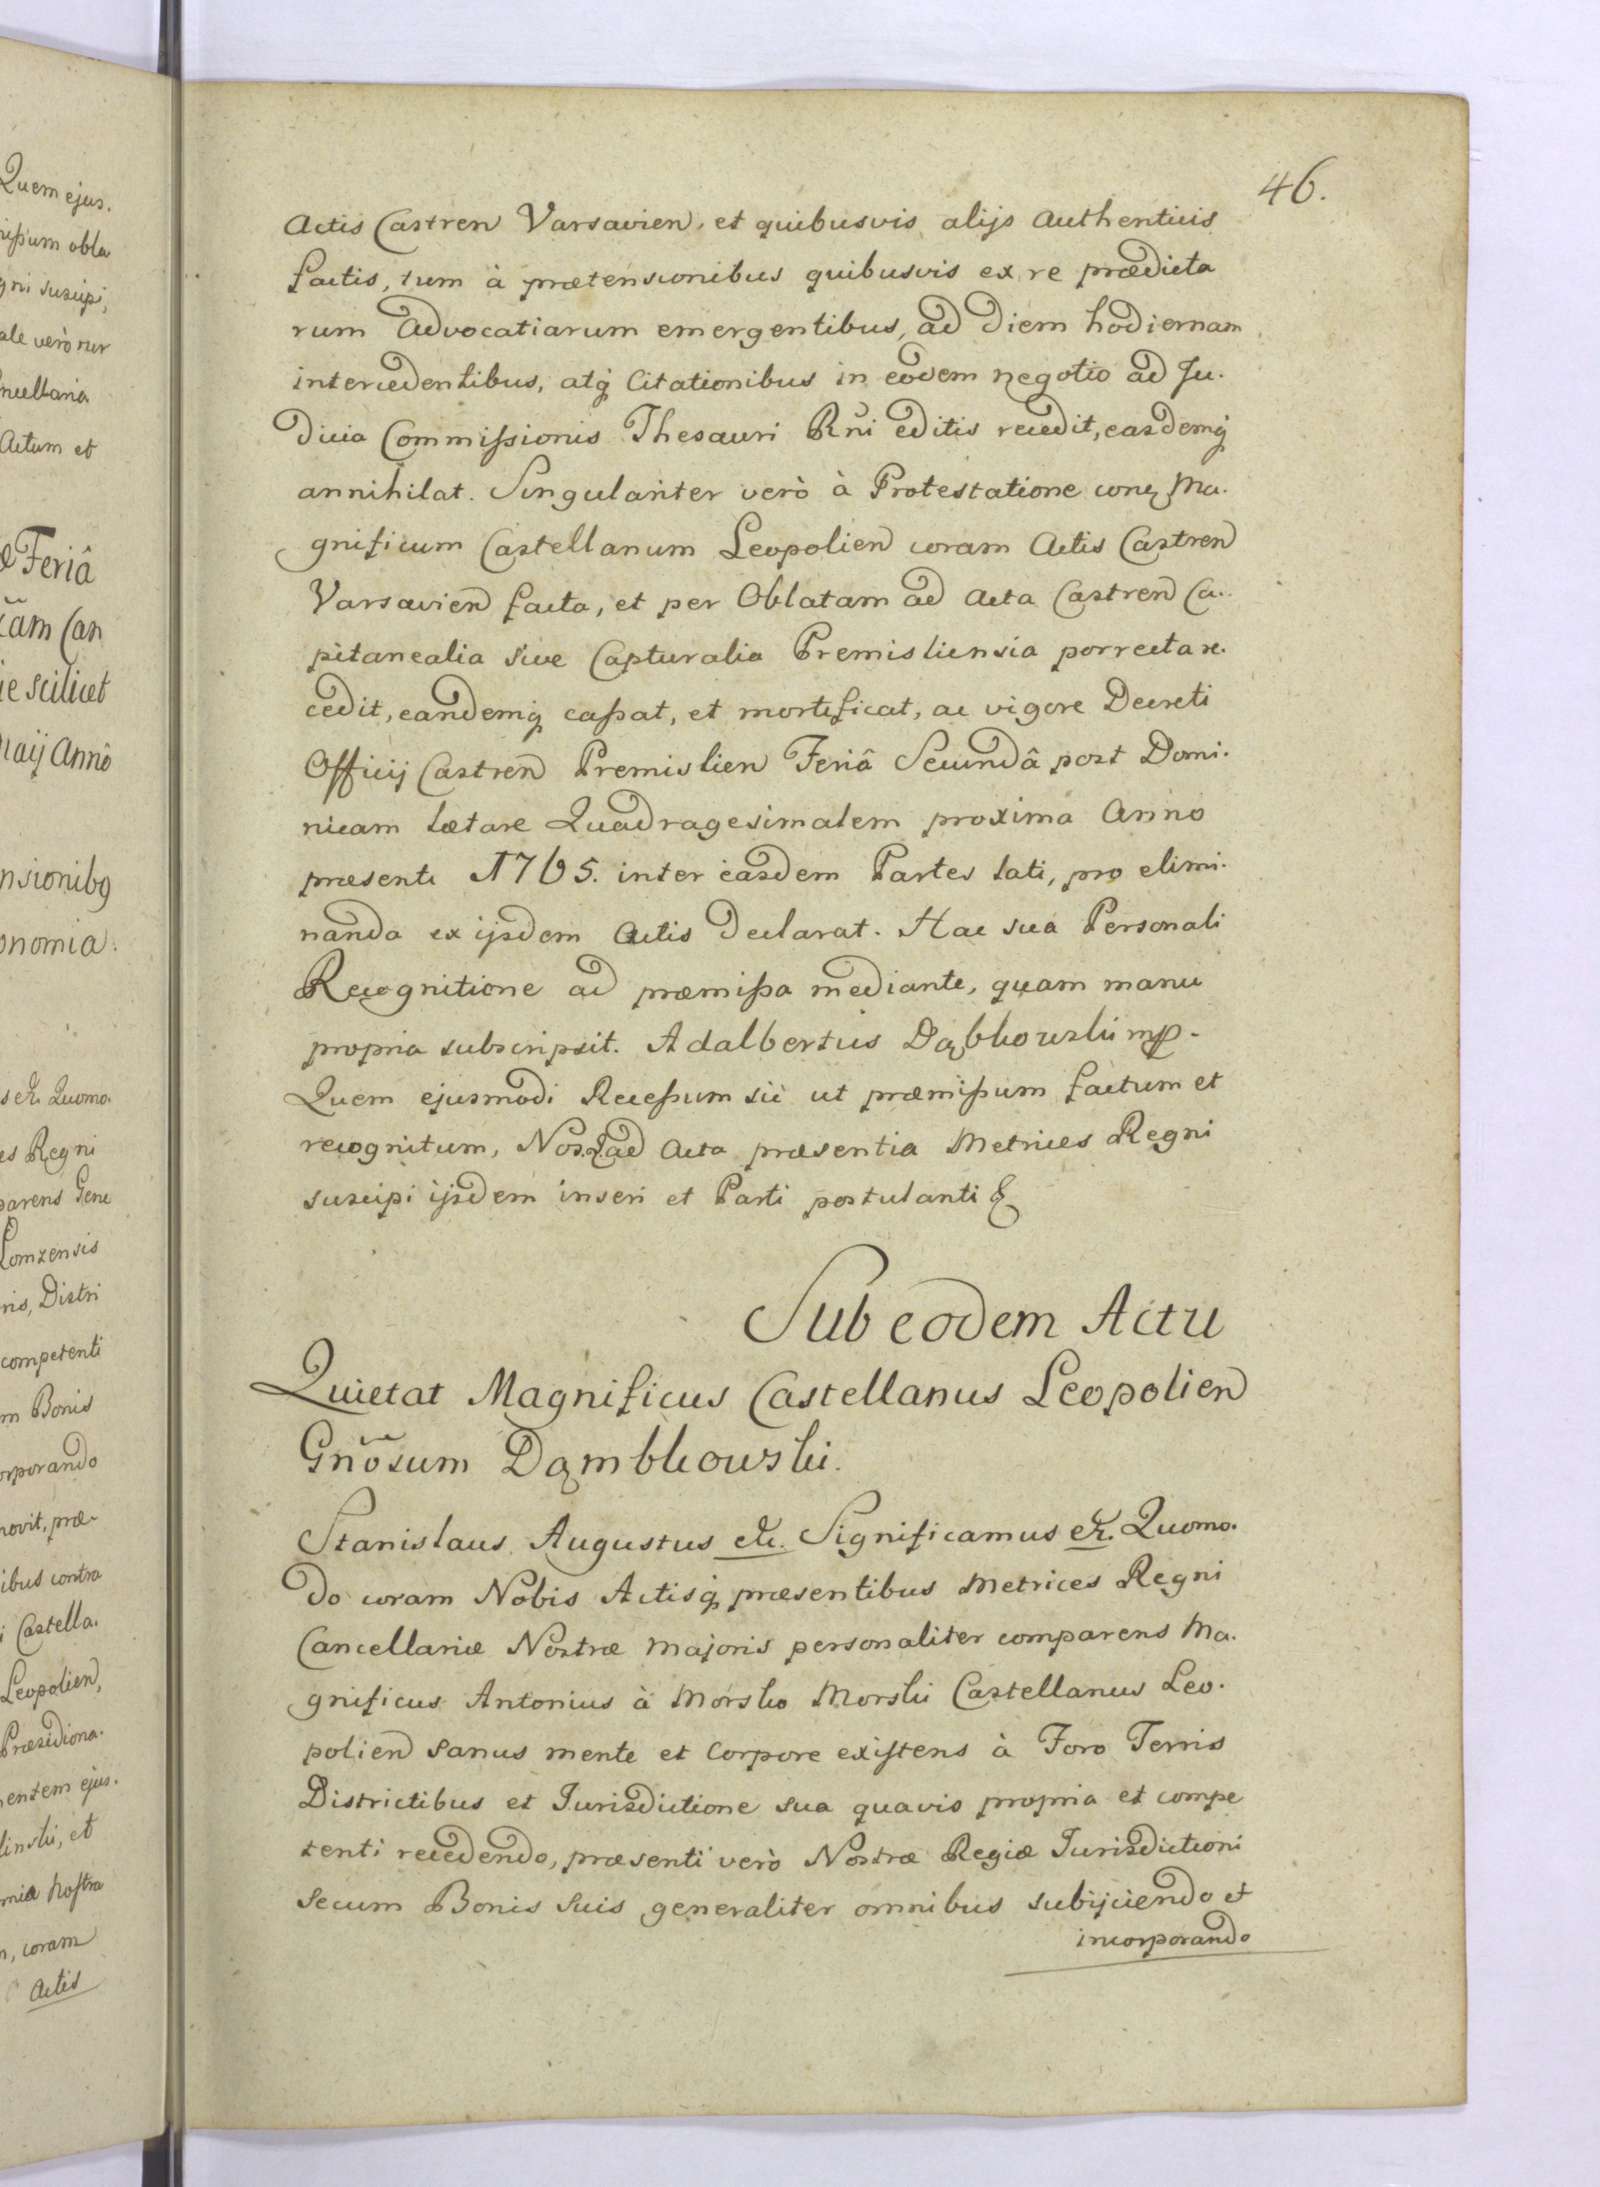 46.
Actis Castren Varsavien, et quibusvis alijs Authenticis
factis, tum à prætensionibus quibusvis ex re prædicta
rum Advocatiarum emergentibus, ad diem hodiernam
intercedentibus, atq̃ Citationibus in eodem negotio ad Ju.
dicia Commissionis Thesauri Rñi editis recedit, easdemq̃
annihilat. Singulariter verò à Protestatione conq̃ Ma.
gnificum Castellanum Leopolien coram Actis Castren
Varsavien facta, et per Oblatam ad Acta Castren Ca.
pitanealia sive Capturalia Premisliensia porrecta re.
cedit, eandemq̃ cassat, et mortificat, ac vigore Decreti
Officij Castren Premislien Feriâ Secundâ post Domi.
nicam Lætare Quadragesimalem proxima Anno
præsenti 1765. inter easdem Partes lati, pro elimi.
nanda ex ijsdem Actis declarat. Hac sua Personali
Recognitione ad præmissa mediante, quam manu
propria subscripsit. Adalbertus Dąbkowski mp.
Quem ejusmodi Recessum sic ut præmissum factum et
recognitum, Nos ad Acta præsentia Metrices Regni
suscipi ijsdem inseri et Parti postulanti &
Sub eodem Actu
Quietat Magnificus Castellanus Leopolien
Gñosum Dąmbkowski.
Stanislaus Augustus etc. Significamus etc. Quomo.
do coram Nobis Actisq̃ præsentibus Metrices Regni
Cancellariæ Nostræ Majoris personaliter comparens Ma.
gnificus Antonius à Morsko Morski Castellanus Leo.
polien sanus mente et Corpore existens à Foro Terris
Districtibus et Jurisdictione sua quavis propria et compe
tenti recedendo, præsenti verò Nostræ Regiæ Jurisdictioni
secum Bonis suis generaliter omnibus subijciendo et
incorporando